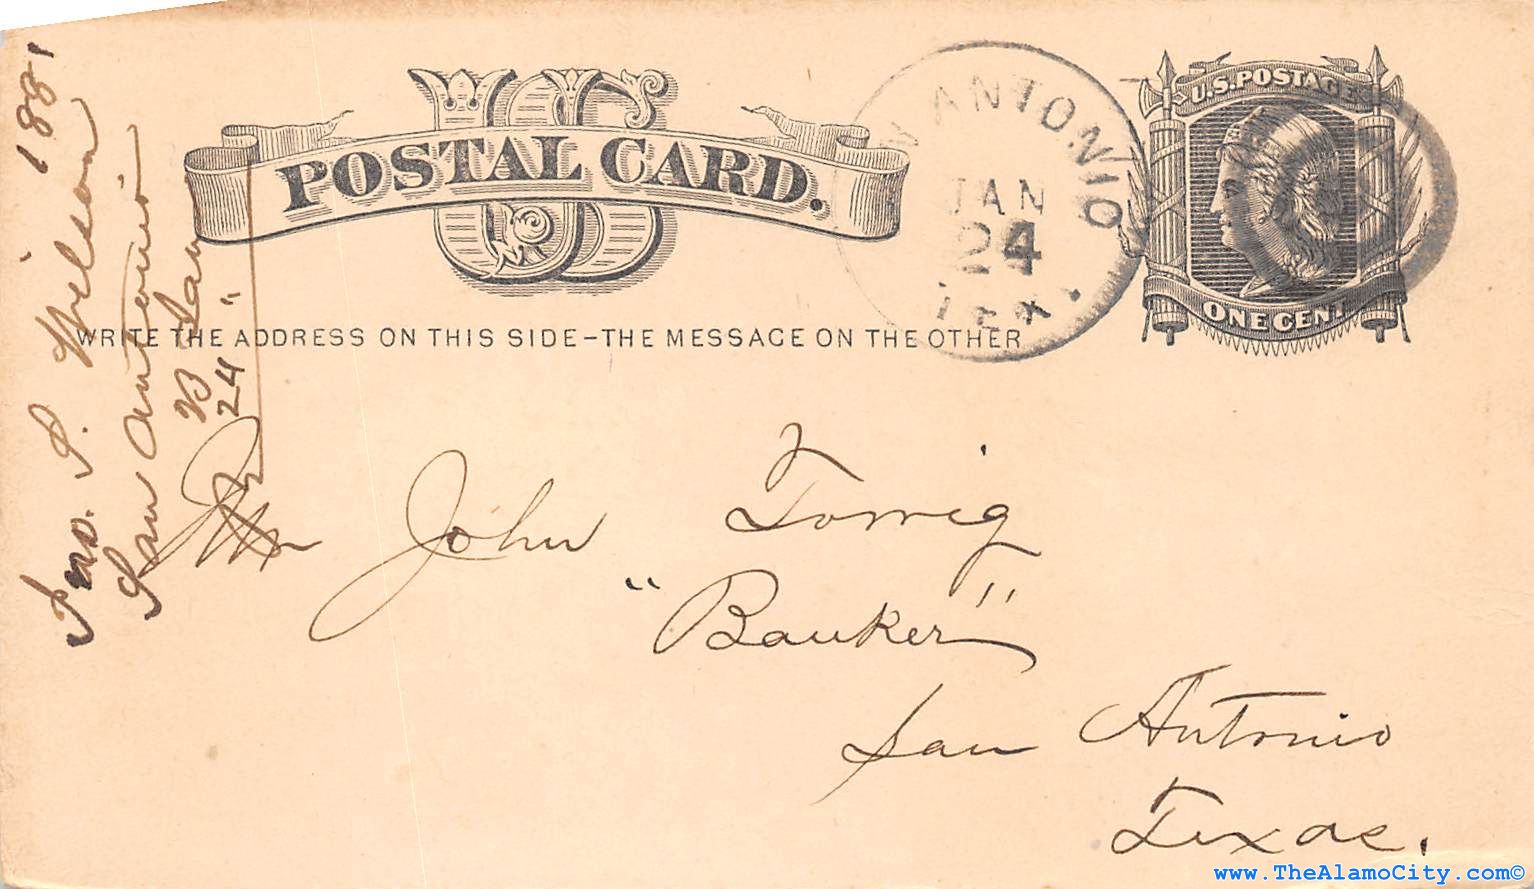 US
POSTAL CARD.
WRITE THE ADDRESS ON THIS SIDE–THE MESSAGE ON THE OTHER
N ANTONIO
JAN
24
TEX.
U.S. POSTAGE
ONE CENT
1881
Jno. S. Wilson
San Antonio
Jan
24"
Mr John Twig
"Banker"
San Antonio
Texas.
www.TheAlamoCity.com©